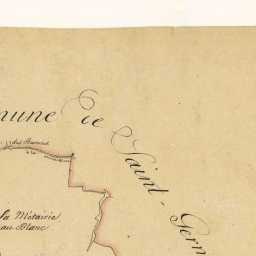 mune de Saint-Germ
La Métairie
au Blanc